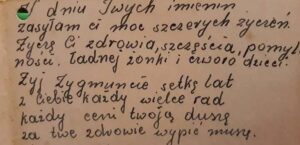 W dniu Twych imienin
zasyłam ci moc szczerych życzeń.
Życzę Ci zdrowia, szczęścia, pomyśl
ności, ładnej żonki i czworo dzieci.
Żyj Zygmuncie setkę lat
z Ciebie każdy wielce rad
każdy ceni twoją duszę
za twe zdrowie wypić muszę.